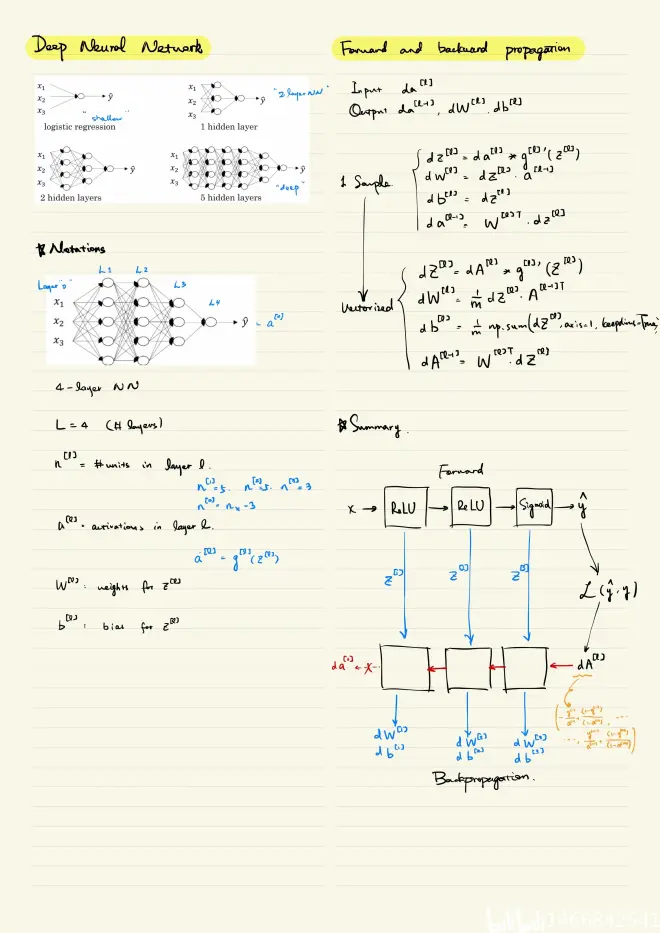 Deep Neural Network
x1
x2
x3
ŷ
"shallow"
logistic regression
x1
x2
x3
ŷ
"2 layer NN"
1 hidden layer
x1
x2
x3
ŷ
2 hidden layers
x1
x2
x3
ŷ
"deep"
5 hidden layers
Notations
L1 L2 L3 L4
Layer "0"
x1
x2
x3
ŷ
4-layer NN
L = 4 (# layers)
n[l] = # units in layer l.
n[0] = nx = 3
a[l] = activations in layer l.
a[l] = g[l](z[l])
W[l] : weights for z[l]
b[l] : bias for z[l]
Forward and backward propagation
Input da[l]
Output da[l-1], dW[l], db[l]
1 Sample
dz[l] = da[l] * g[l]'(z[l])
dW[l] = dz[l] · a[l-1]
db[l] = dz[l]
da[l-1] = W[l]T · dz[l]
Vectorized
dZ[l] = dA[l] * g[l]'(Z[l])
dW[l] = 1/m dZ[l] · A[l-1]T
db[l] = 1/m np.sum(dZ[l], axis=1, keepdims=True)
dA[l-1] = W[l]T · dZ[l]
Summary.
Forward
x → ReLU → ReLU → Sigmoid → ŷ
z[1] z[2] z[3]
L(ŷ, y)
dA[l]
dW[1] dW[2] dW[3]
db[1] db[2] db[3]
Backpropagation.